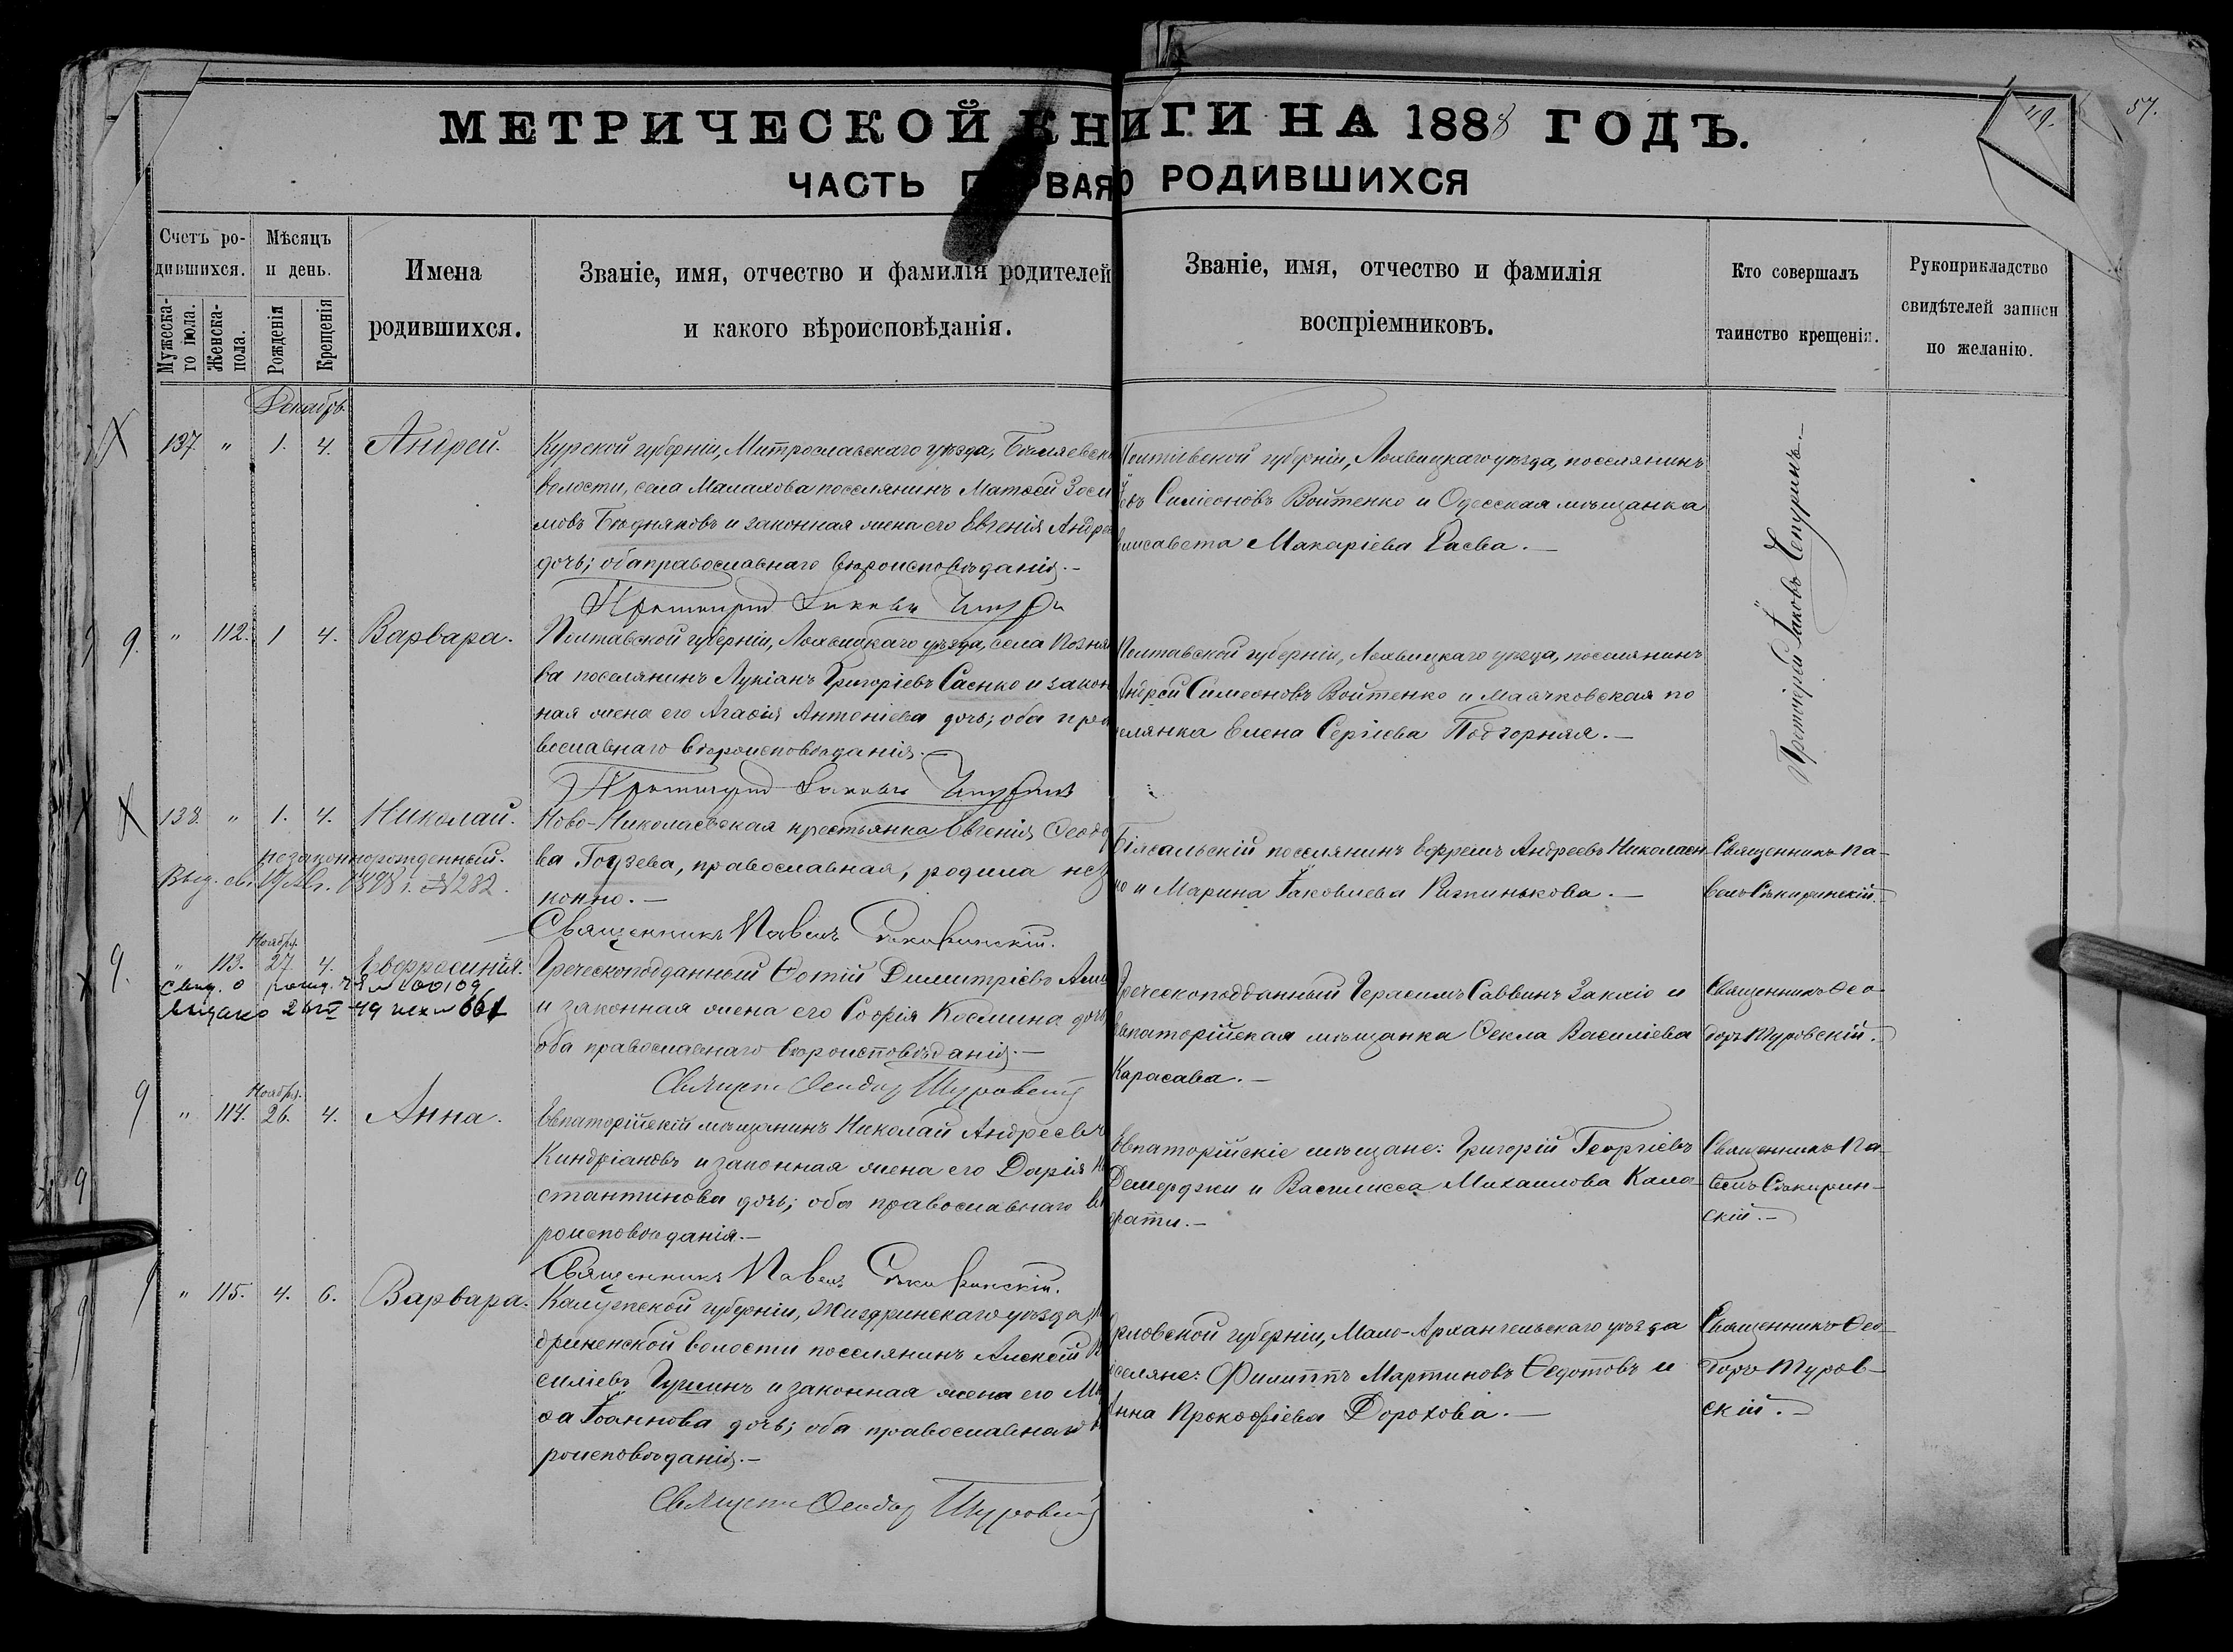 МЕТРИЧЕСКОЙ КНИГИ НА 1888 ГОДЪ.
ЧАСТЬ ПЕРВАЯ О РОДИВШИХСЯ
49.
57.
Счетъ ро-
дившихся.
Мужеска-
го пола.
Женска-
пола.
Мѣсяцъ
и день.
Рожденія
Крещенія
Имена
родившихся.
Званіе, имя, отчество и фамилія родителей
и какого вѣроисповѣданія.
Званіе, имя, отчество и фамилія
воспріемниковъ.
Кто совершалъ
таинство крещенія.
Рукоприкладство
свидѣтелей записи
по желанію.
Декабрь
137. " 1. 4. Андрей.
Курской губерніи, Митрославскаго уѣзда,
волости, села Малахова поселянинъ Матѳей Зоси
мовъ Бѣдняковъ и законная жена его Евгенія Андре
дочь; оба православнаго вѣроисповѣданія.-
Протоіерей Іаковъ Чепуринъ
Полтавской губерніи, Лохвицкаго уѣзда, поселянинъ
Симеоновъ Войтенко и Одесская мѣщанка
Елисавета Макаріева Раева.-
Протоіерей Іаковъ Чепуринъ.-
9. " 112. 1 4. Варвара.
Полтавской губерніи, Лохвицкаго уѣзда, села Позня
ва поселянинъ Лукіанъ Григоріевъ Саенко и закон
ная жена его Агаѳія Антоніева дочь; оба пра
вославнаго вѣроисповѣданія.-
Протоіерей Іаковъ Чепуринъ
Полтавской губерніи, Лохвицкаго уѣзда, поселянинъ
Андрей Симеоновъ Войтенко и Маячковская по
селянка Елена Сергіева Подгорная.-
138. " 1. 4. Николай.
незаконнорожденный.
Выд. св. 1898 г. № 282.
Ново-Николаевская крестьянка Евгенія Ѳеодо
ва Гоузева, православная, родила нез
конно.-
Священникъ Павелъ Сѣкиринскій.
Біясальскій поселянинъ Ефремъ Андреевъ Николаен
ко и Марина Іаковлева.-
Священникъ Па-
велъ Сѣкиринскій.-
Ноябрь.
9. " 113. 27 4. Евфросинія.
Свид. о рожд. № 100109
выдано
Греческоподданный Фотій Димитріевъ
и законная жена его Софія Космина дочь
оба православнаго вѣроисповѣданія.-
Священ Ѳеодоръ Туровскій
Греческоподданный Герасимъ Саввинъ Заклио и
Евпаторійская мѣщанка Ѳекла Василіева
Карасава.-
Священникъ Ѳео-
доръ Туровскій.
Ноябрь.
9 " 114. 26. 4. Анна.
Евпаторійскій мѣщанинъ Николай Андреевъ
Киндріановъ и законная жена его Дарія Ко
стантинова дочь; оба православнаго вѣ
роисповѣданія.-
Священникъ Павелъ Сѣкиринскій.
Евпаторійскіе мѣщане: Григорій Георгіевъ
Демерджи и Василисса Михаилова Кала-
фати.-
Священникъ Па-
велъ Сѣкирин-
скій.-
" 115. 4. 6. Варвара.
Калужской губерніи, Жиздринскаго уѣзда,
волости поселянинъ Алексій Ва
силіевъ Гришинъ и законная жена его Ма
Іоаннова дочь; оба православнаго вѣ
роисповѣданія.-
Священ Ѳеодоръ Туровскій
Орловской губерніи, Мало-Архангельскаго уѣзда
поселяне: Филиппъ Мартиновъ Ѳедотовъ и
Анна Прокофіева Дорохова.-
Священникъ Ѳео-
доръ Туров-
скій.-